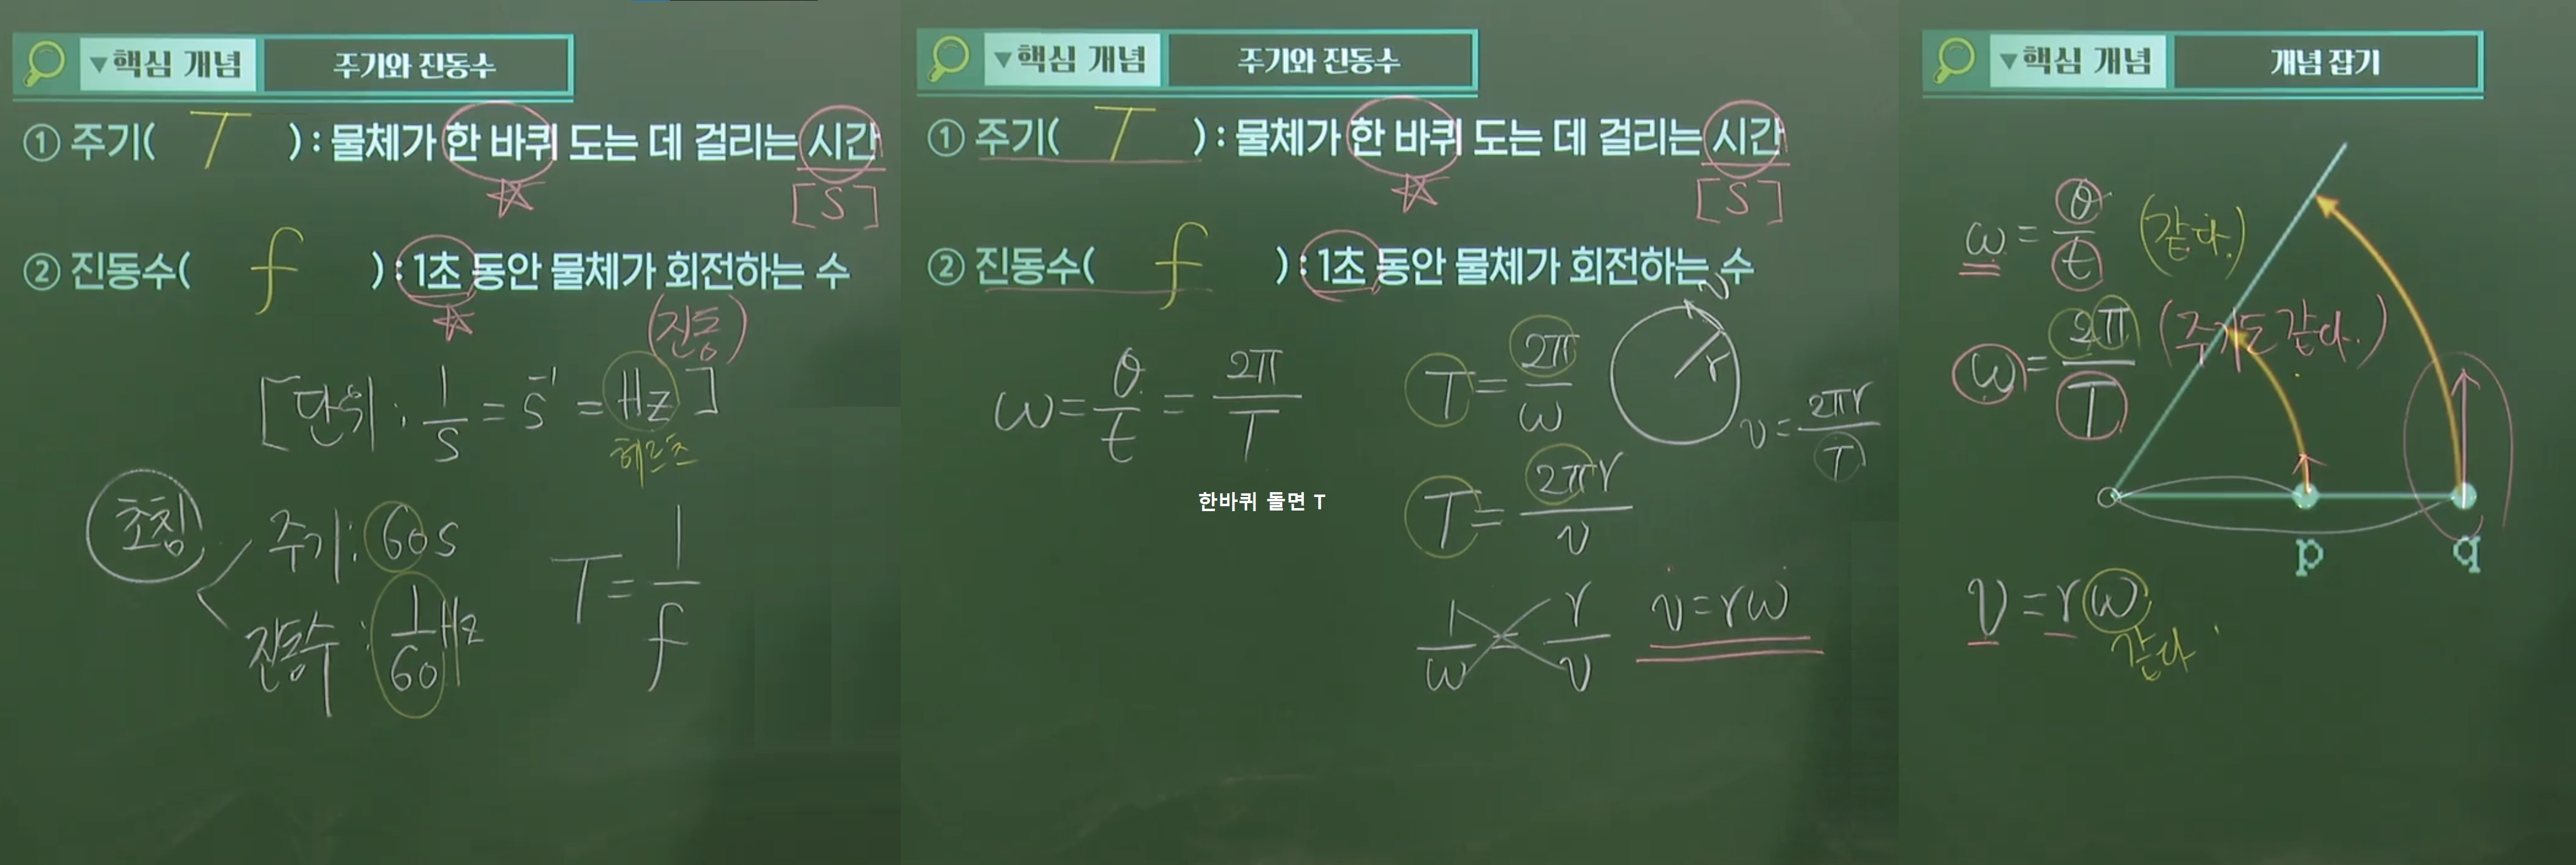 ▼핵심 개념 주기와 진동수
① 주기( T ) : 물체가 한 바퀴 도는 데 걸리는 시간
[S]
② 진동수( f ) : 1초 동안 물체가 회전하는 수
(진동)
[단위 : 1/s = s⁻¹ = Hz]
헤르츠
초침
주기 : 60s
진동수 : 1/60 Hz
T = 1/f
▼핵심 개념 주기와 진동수
① 주기( T ) : 물체가 한 바퀴 도는 데 걸리는 시간
[S]
② 진동수( f ) : 1초 동안 물체가 회전하는 수
ω = θ/t = 2π/T
T = 2π/ω
v
r
v = 2πr/T
한바퀴 돌면 T
T = 2πr/v
1/ω = r/v
v = rω
▼핵심 개념 개념 잡기
ω = θ/t (같다.)
ω = 2π/T (주기도 같다.)
p
q
v = rω
같다